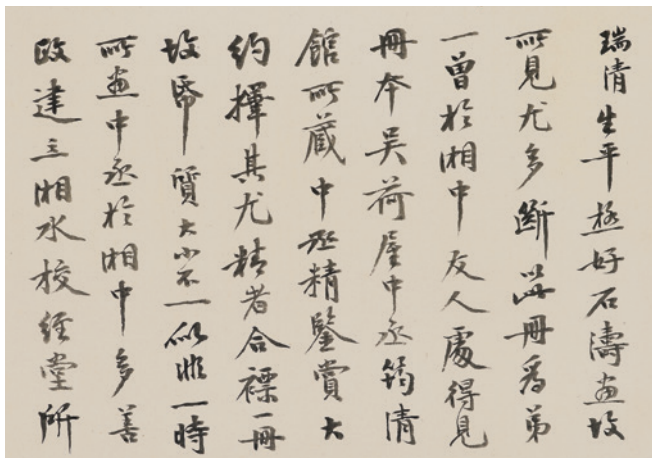 瑞清生平極好石濤畫故
所見尤多斷此冊為弟
一曾於湘中友人處得見
冊本吳荷屋中丞筠清
館所藏中丞精鑒賞大
約擇其尤精者合褾一冊
故帋質大小不一似非一時
所畫中丞於湘中多善
政建立湘水校經堂所